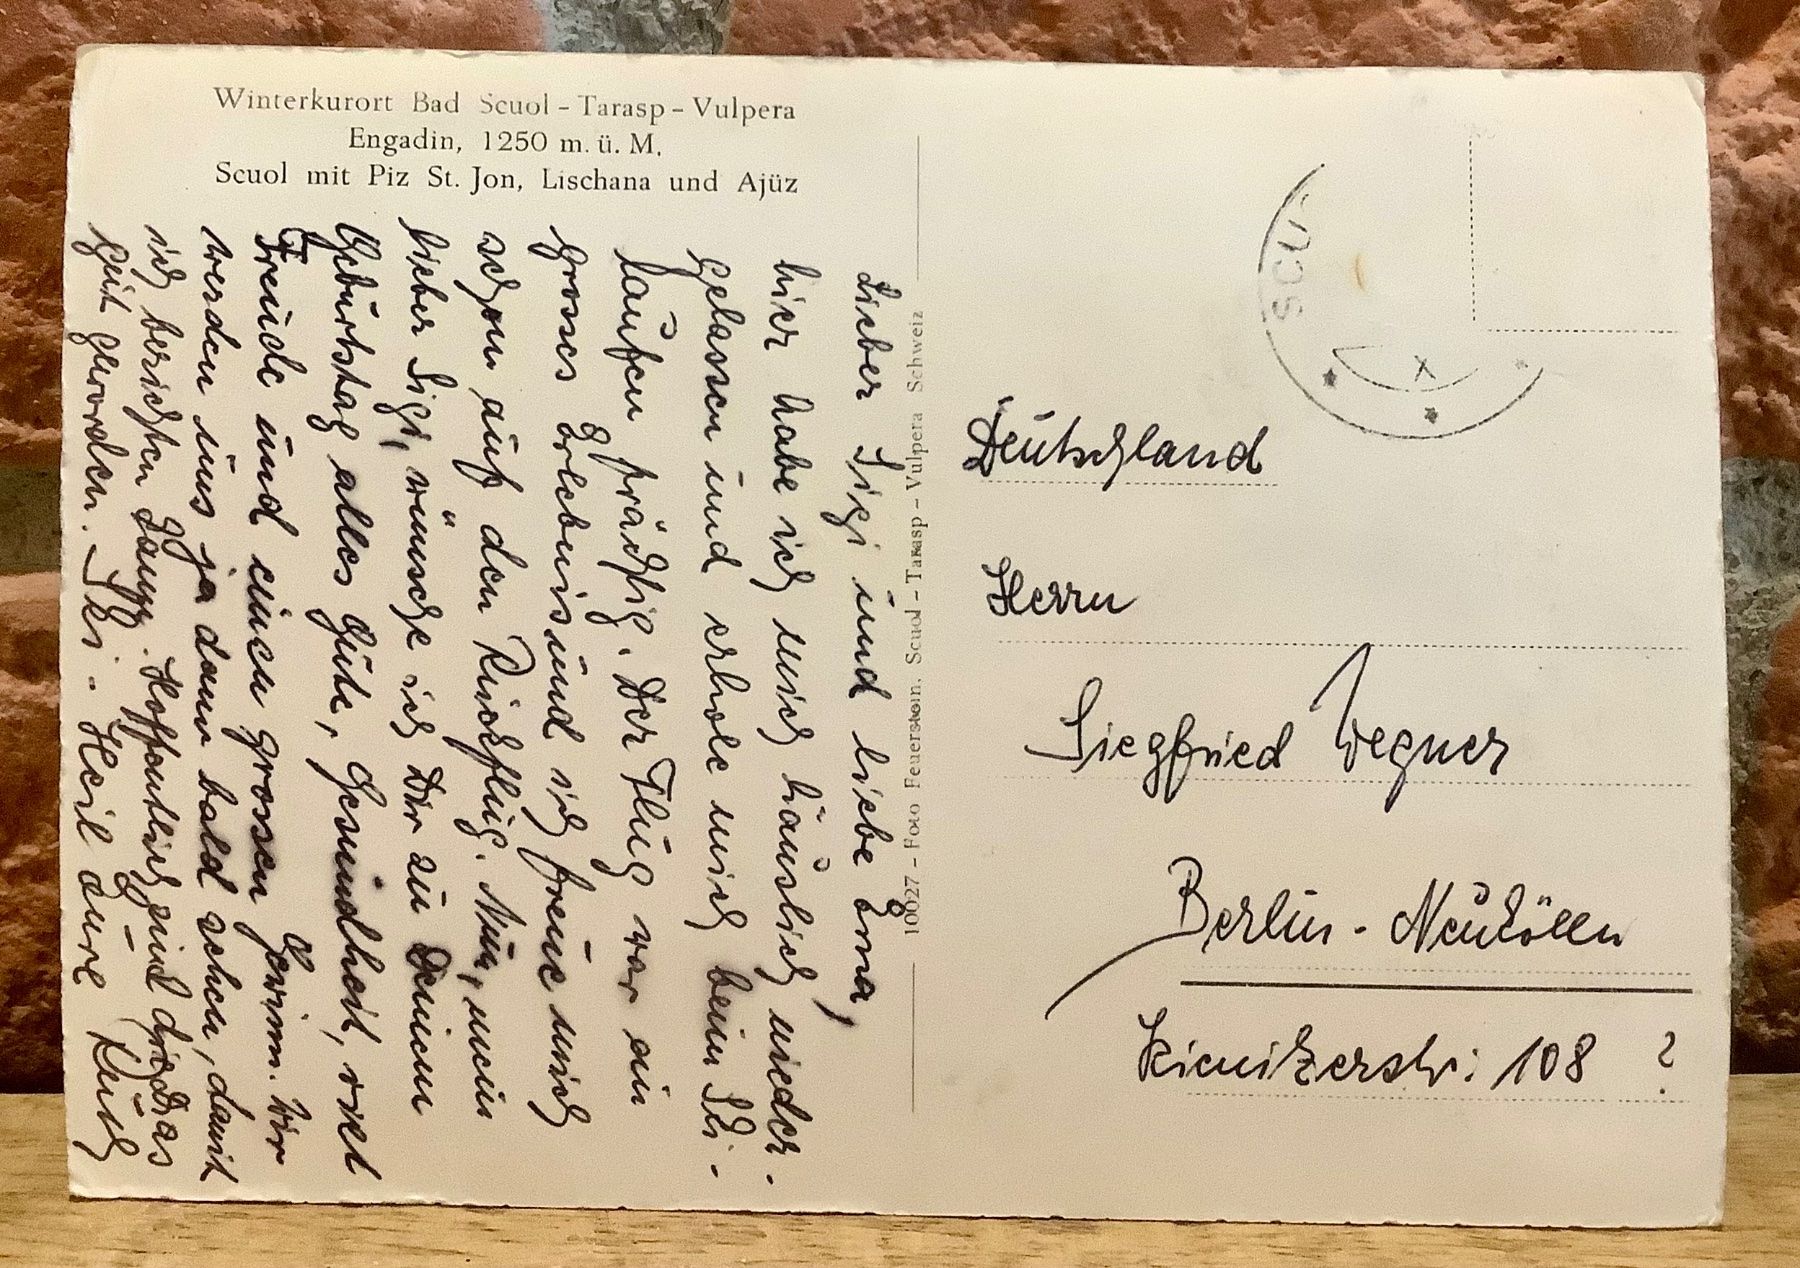 Winterkurort Bad Scuol - Tarasp - Vulpera
Engadin, 1250 m. ü. M.
Scuol mit Piz St. Jon, Lischana und Ajüz
Lieber Sigi und liebe Erna,
hier habe ich mich häuslich nieder-
gelassen und erhole mich beim Ski-
laufen prächtig. Der Flug war ein
grosses Erlebnis und ich freue mich
schon auf den Rückflug. Nun, mein
lieber Sigi, wünsche ich Dir zu Deinem
Geburtstag alles Gute, Gesundheit, viel
Freude und einen grossen Gewinn. Wir
werden uns ja dann bald sehen, damit
ich berichten kann. Hoffentlich sind die Dias
gut geworden. Ski - Heil Eure Ruth
10027 - Foto Feuerstein, Scuol - Tarasp - Vulpera Schweiz
SCU
Deutschland
Herrn
Siegfried Wegner
Berlin - Neukölln
Kienitzerstr. 108 ?